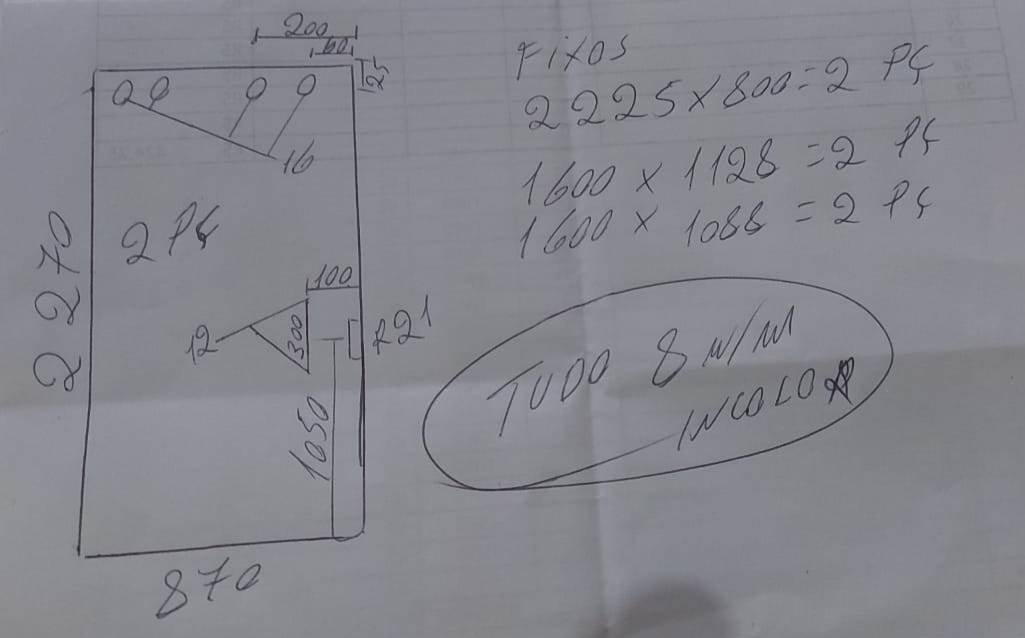 200
60
25
16
2270
2 PÇ
100
12
300
R21
1050
870
FIXOS
2225 x 800 = 2 PÇ
1600 x 1128 = 2 PÇ
1600 x 1088 = 2 PÇ
TUDO 8 M/M
INCOLOR